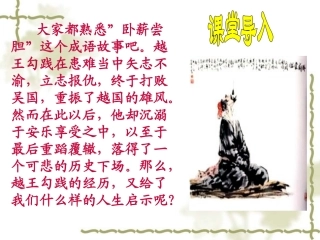 课堂导入
大家都熟悉”卧薪尝
胆”这个成语故事吧。越
王勾践在患难当中矢志不
渝,立志报仇,终于打败
吴国,重振了越国的雄风。
然而在此以后,他却沉溺
于安乐享受之中,以至于
最后重蹈覆辙,落得了一
个可悲的历史下场。那么,
越王勾践的经历,又给了
我们什么样的人生启示呢?